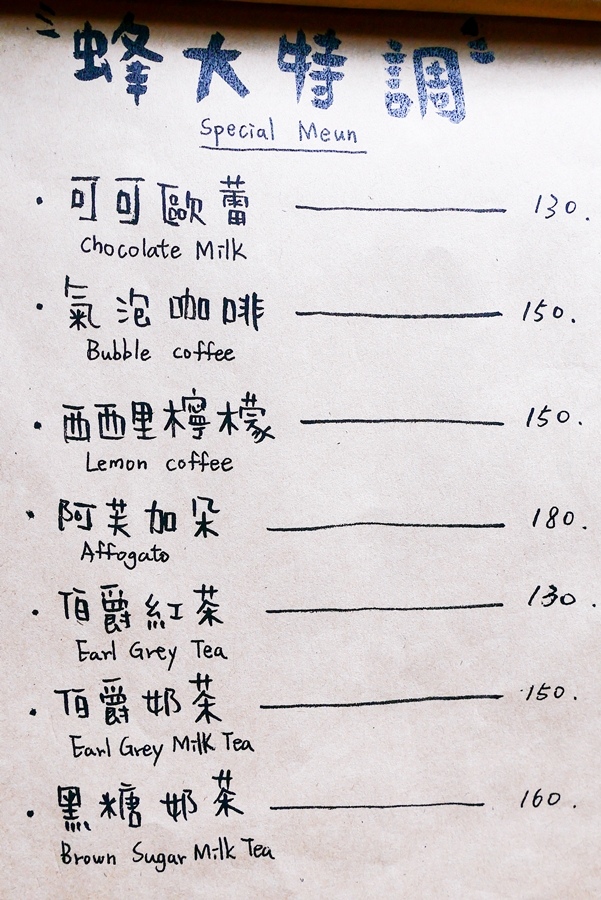 蜂大特調
Special Meun
· 可可歐蕾 130.
Chocolate Milk
· 氣泡咖啡 150.
Bubble coffee
· 西西里檸檬 150.
Lemon coffee
· 阿芙加朵 180.
Affogato
· 伯爵紅茶 130.
Earl Grey Tea
· 伯爵奶茶 150.
Earl Grey Milk Tea
· 黑糖奶茶 160.
Brown Sugar Milk Tea